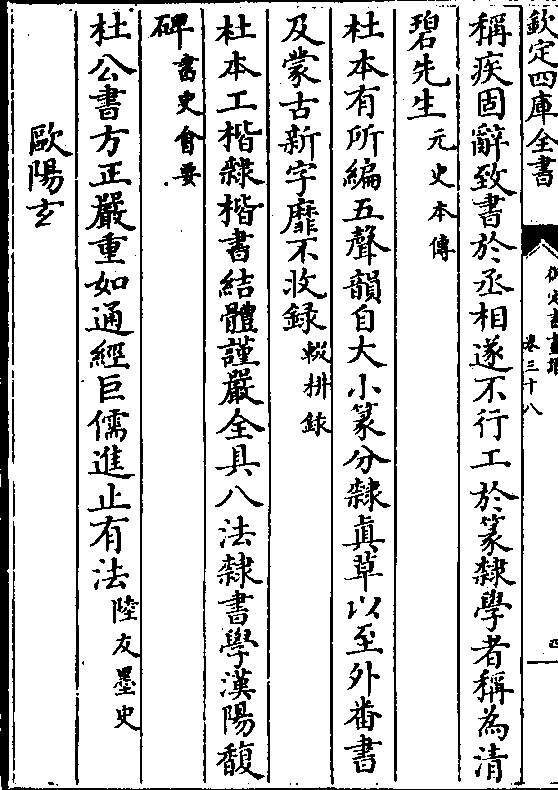 欽定四庫全書
卷三十八
稱疾固辭致書於丞相遂不行工於篆隸學者稱為清
碧先生元史本傳
杜本有所編五聲韻自大小篆分隸真草以至外番書
及蒙古新字靡不收録輟耕録
杜本工楷隸楷書結體謹嚴全具八法隸書學漢陽馥
碑書史會要
杜公書方正嚴重如通經巨儒進止有法陸友墨史
歐陽玄